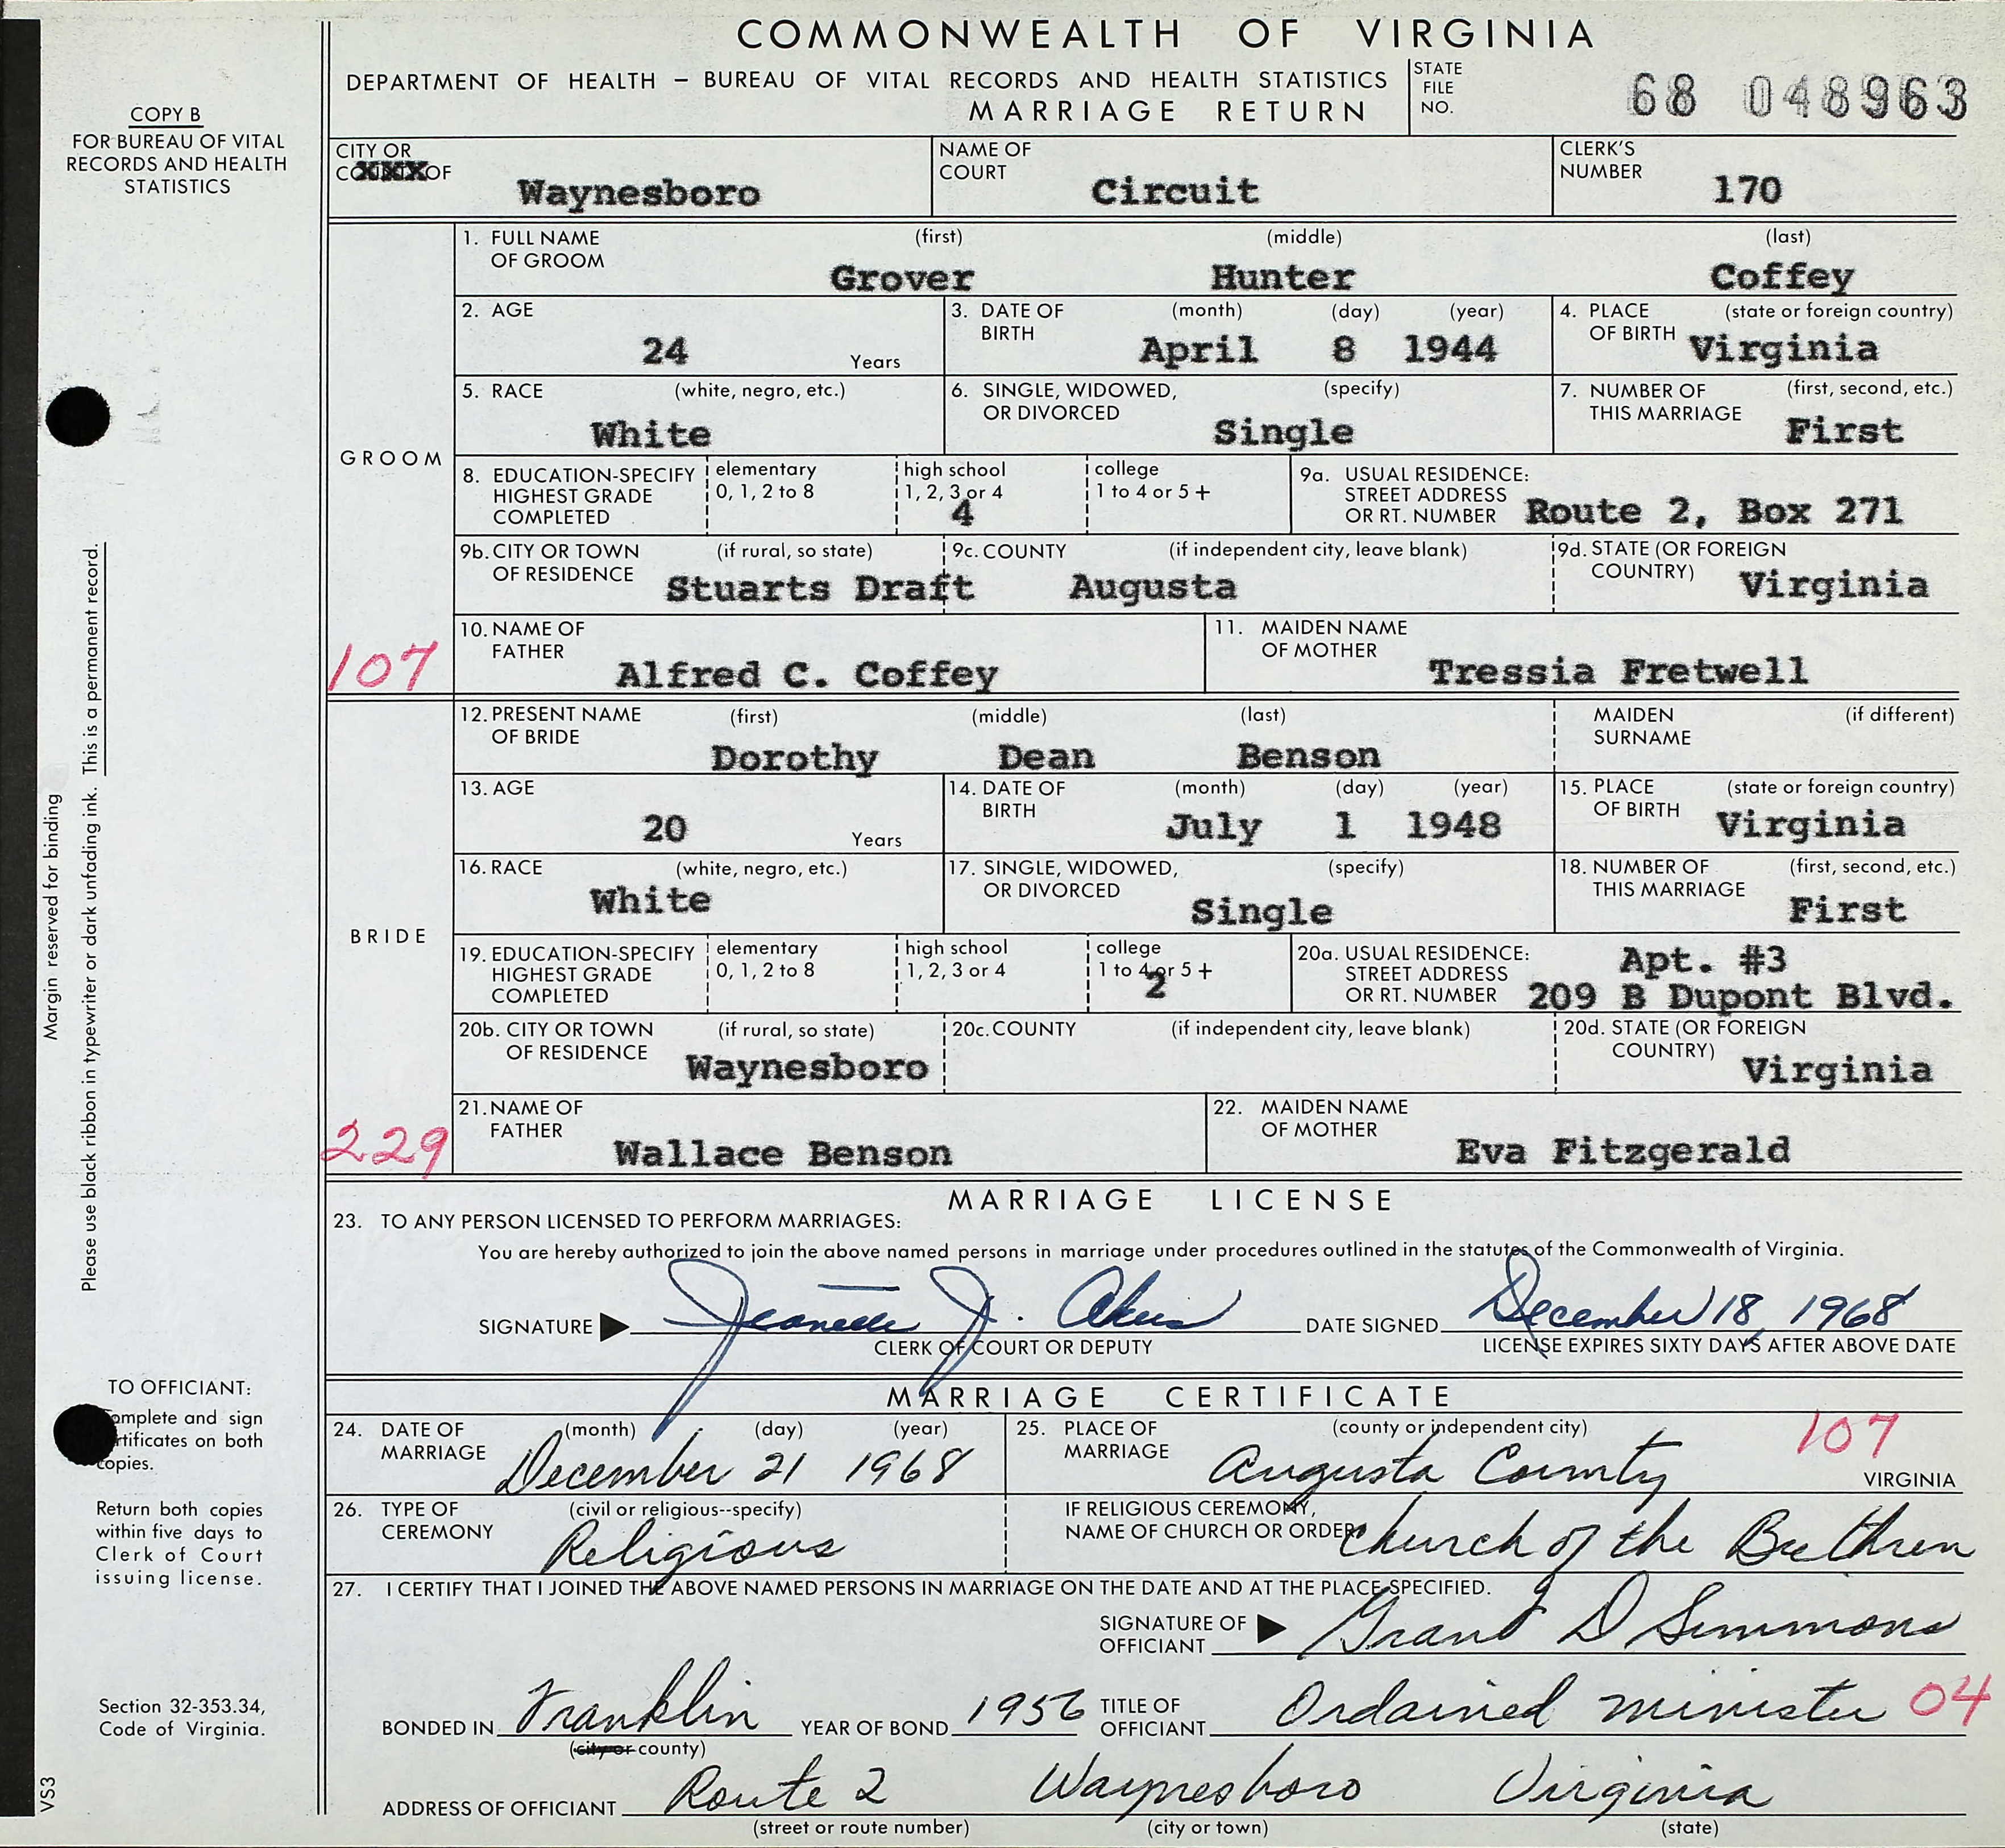 COMMONWEALTH OF VIRGINIA
DEPARTMENT OF HEALTH – BUREAU OF VITAL RECORDS AND HEALTH STATISTICS
MARRIAGE RETURN
STATE FILE NO. 68 048963
COPY B
FOR BUREAU OF VITAL
RECORDS AND HEALTH
STATISTICS
CITY OR
COXXXXOF Waynesboro
NAME OF COURT Circuit
CLERK'S NUMBER 170
GROOM
107
1. FULL NAME OF GROOM (first) (middle) (last)
Grover Hunter Coffey
2. AGE 24 Years
3. DATE OF BIRTH (month) (day) (year)
April 8 1944
4. PLACE OF BIRTH (state or foreign country)
Virginia
5. RACE (white, negro, etc.)
White
6. SINGLE, WIDOWED, OR DIVORCED (specify)
Single
7. NUMBER OF THIS MARRIAGE (first, second, etc.)
First
8. EDUCATION-SPECIFY HIGHEST GRADE COMPLETED
elementary 0, 1, 2 to 8
high school 1, 2, 3 or 4
4
college 1 to 4 or 5 +
9a. USUAL RESIDENCE: STREET ADDRESS OR RT. NUMBER
Route 2, Box 271
9b. CITY OR TOWN OF RESIDENCE (if rural, so state)
Stuarts Draft
9c. COUNTY (if independent city, leave blank)
Augusta
9d. STATE (OR FOREIGN COUNTRY)
Virginia
10. NAME OF FATHER
Alfred C. Coffey
11. MAIDEN NAME OF MOTHER
Tressia Fretwell
BRIDE
229
12. PRESENT NAME OF BRIDE (first) (middle) (last)
Dorothy Dean Benson
MAIDEN SURNAME (if different)
13. AGE 20 Years
14. DATE OF BIRTH (month) (day) (year)
July 1 1948
15. PLACE OF BIRTH (state or foreign country)
Virginia
16. RACE (white, negro, etc.)
White
17. SINGLE, WIDOWED, OR DIVORCED (specify)
Single
18. NUMBER OF THIS MARRIAGE (first, second, etc.)
First
19. EDUCATION-SPECIFY HIGHEST GRADE COMPLETED
elementary 0, 1, 2 to 8
high school 1, 2, 3 or 4
college 1 to 4 or 5 +
2
20a. USUAL RESIDENCE: STREET ADDRESS OR RT. NUMBER
Apt. #3
209 B Dupont Blvd.
20b. CITY OR TOWN OF RESIDENCE (if rural, so state)
Waynesboro
20c. COUNTY (if independent city, leave blank)
20d. STATE (OR FOREIGN COUNTRY)
Virginia
21. NAME OF FATHER
Wallace Benson
22. MAIDEN NAME OF MOTHER
Eva Fitzgerald
MARRIAGE LICENSE
23. TO ANY PERSON LICENSED TO PERFORM MARRIAGES:
You are hereby authorized to join the above named persons in marriage under procedures outlined in the statutes of the Commonwealth of Virginia.
SIGNATURE Jeanette J. Akers DATE SIGNED December 18, 1968
CLERK OF COURT OR DEPUTY LICENSE EXPIRES SIXTY DAYS AFTER ABOVE DATE
MARRIAGE CERTIFICATE
24. DATE OF MARRIAGE (month) (day) (year)
December 21 1968
25. PLACE OF MARRIAGE (county or independent city)
Augusta County 107 VIRGINIA
26. TYPE OF CEREMONY (civil or religious--specify)
Religious
IF RELIGIOUS CEREMONY, NAME OF CHURCH OR ORDER:
Church of the Brethren
27. I CERTIFY THAT I JOINED THE ABOVE NAMED PERSONS IN MARRIAGE ON THE DATE AND AT THE PLACE SPECIFIED.
SIGNATURE OF OFFICIANT Grant D Simmons
BONDED IN Franklin YEAR OF BOND 1956 TITLE OF OFFICIANT Ordained minister 04
(city or county)
ADDRESS OF OFFICIANT Route 2 Waynesboro Virginia
(street or route number) (city or town) (state)
Margin reserved for binding
Please use black ribbon in typewriter or dark unfading ink. This is a permanent record.
TO OFFICIANT:
omplete and sign
rtificates on both
copies.
Return both copies
within five days to
Clerk of Court
issuing license.
Section 32-353.34,
Code of Virginia.
VS3